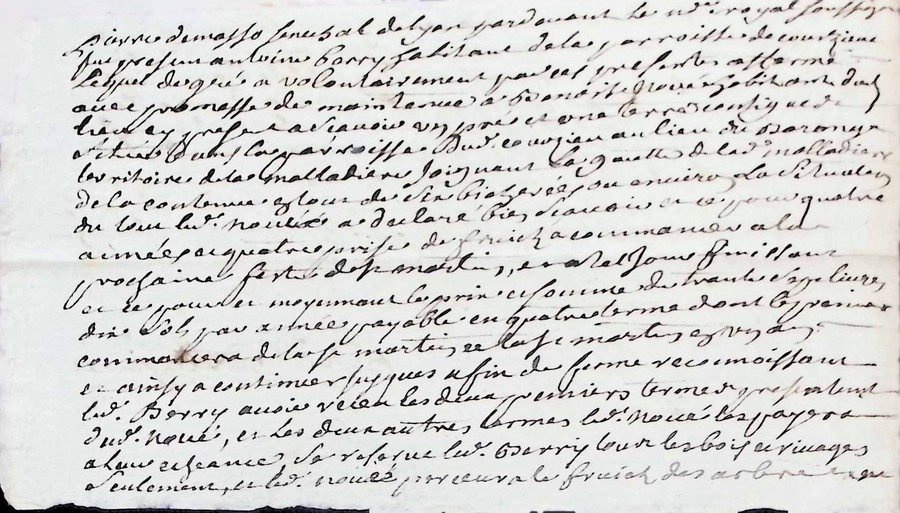 pierre demasso senechal de lyon pardevant le no.re royal soussigne
fut present antoine berry habitant de la parroisse de courzieu
lequel de gré a volontairement par ces presentes afferme
avec promesse de maintenue a benoist noué habitant dud.
lieu cy present a scavoir un pré et une terre contigue
scitués dans la parroisse dud. courzieu au lieu du
territoire de la malladiere joignant la goutte de lad.e malladiere
de la contenue en tout de six bicherées ou environ la situation
du tout led. noué a declaré bien scavoir et ce pour quatre
années et quatre prise de fruict a commancer a la
prochaine feste de st martin, et a tel jour finissant
et ce pour et moyennant le prix et somme de trante sept livres
dix sols par année payable en quatre terme dont le premier
commancera de la st martin en la st martin en un an
et ainsy a continuer jusques a fin de ferme reconnoissant
led. Berry avoir receu les deux premiers termes presentement
dud. noué, et les deux autres termes led. noué les payera
a leur echeance se reserve led. Berry tout les bois et rivages
seulement, et led. noué percevra le fruict des arbres